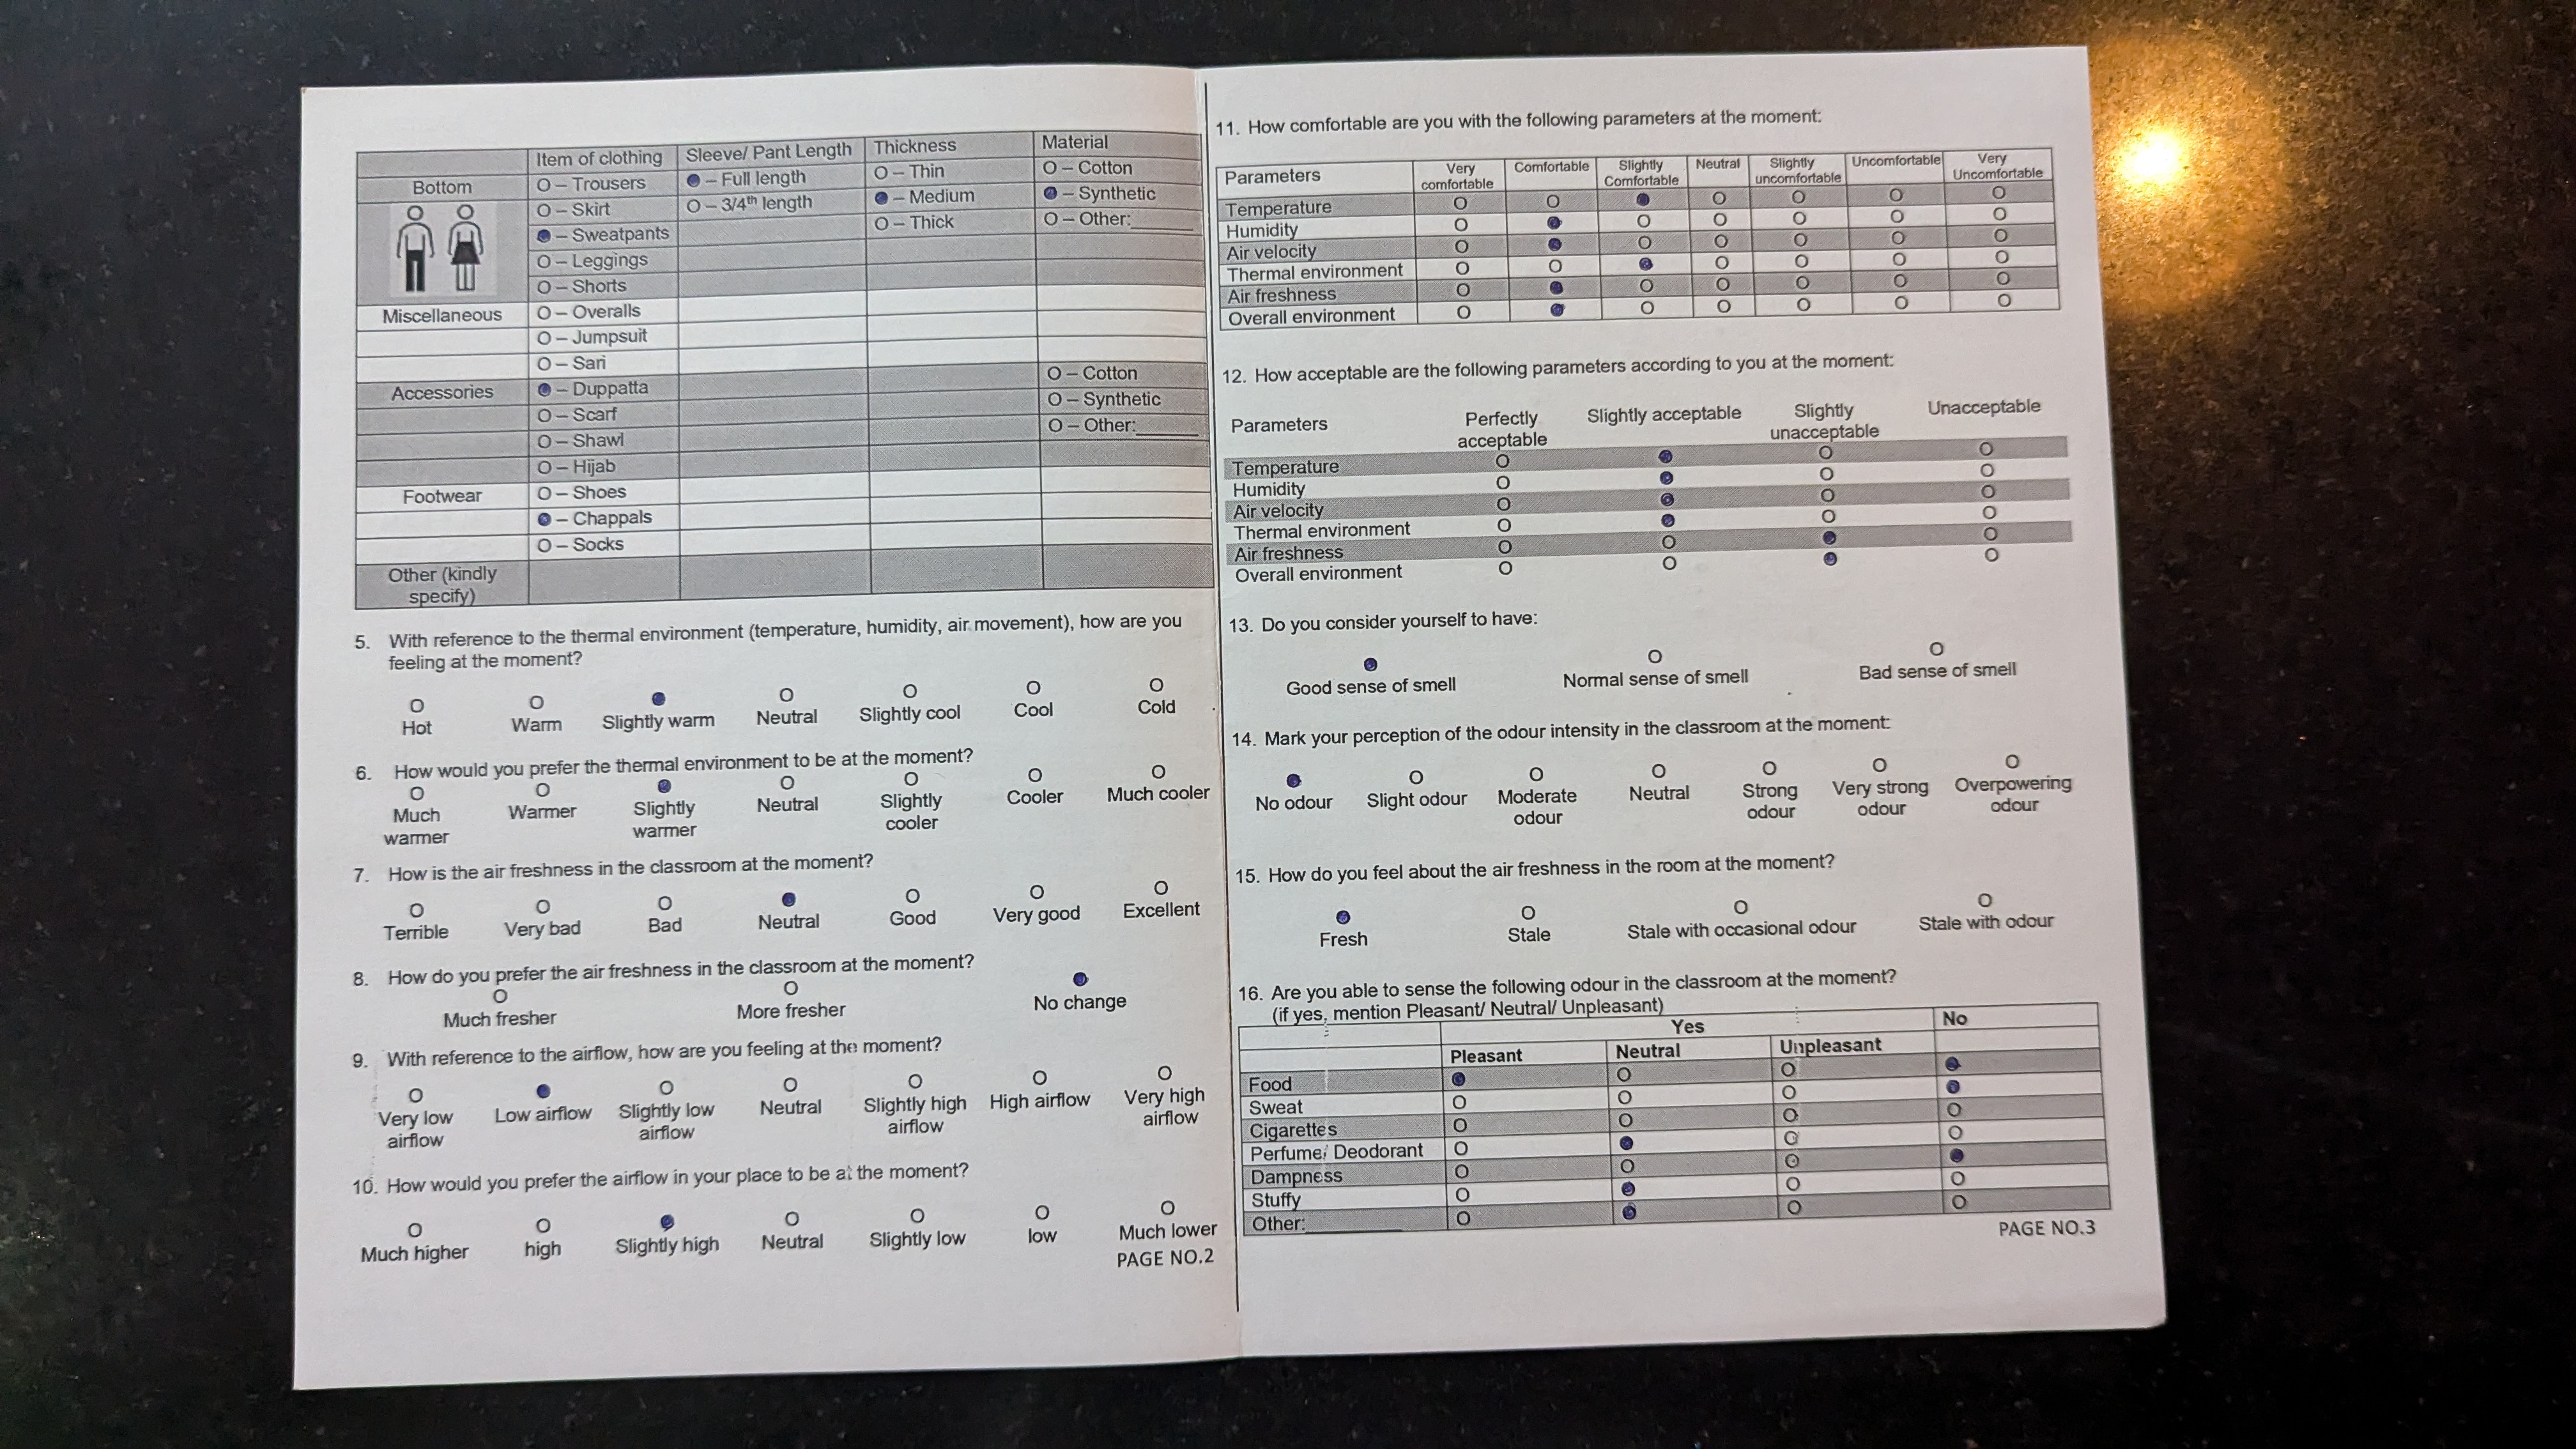 Item of clothing Sleeve/ Pant Length Thickness Material
Bottom O – Trousers ● – Full length O – Thin O – Cotton
O – Skirt O – 3/4th length ● – Medium ● – Synthetic
● – Sweatpants O – Thick O – Other:______
O – Leggings
O – Shorts
Miscellaneous O – Overalls
O – Jumpsuit
O – Sari
Accessories ● – Duppatta O – Cotton
O – Scarf O – Synthetic
O – Shawl O – Other:______
O – Hijab
Footwear O – Shoes
● – Chappals
O – Socks
Other (kindly
specify)
5. With reference to the thermal environment (temperature, humidity, air movement), how are you
feeling at the moment?
O O ● O O O O
Hot Warm Slightly warm Neutral Slightly cool Cool Cold
6. How would you prefer the thermal environment to be at the moment?
O O ● O O O O
Much Warmer Slightly Neutral Slightly Cooler Much cooler
warmer warmer cooler
7. How is the air freshness in the classroom at the moment?
O O O ● O O O
Terrible Very bad Bad Neutral Good Very good Excellent
8. How do you prefer the air freshness in the classroom at the moment?
O O ●
Much fresher More fresher No change
9. With reference to the airflow, how are you feeling at the moment?
O ● O O O O O
Very low Low airflow Slightly low Neutral Slightly high High airflow Very high
airflow airflow airflow airflow
10. How would you prefer the airflow in your place to be at the moment?
O O ● O O O O
Much higher high Slightly high Neutral Slightly low low Much lower
PAGE NO.2
11. How comfortable are you with the following parameters at the moment:
Parameters Very Comfortable Slightly Neutral Slightly Uncomfortable Very
comfortable Comfortable uncomfortable Uncomfortable
Temperature O O ● O O O O
Humidity O ● O O O O O
Air velocity O ● O O O O O
Thermal environment O O ● O O O O
Air freshness O ● O O O O O
Overall environment O ● O O O O O
12. How acceptable are the following parameters according to you at the moment:
Parameters Perfectly Slightly acceptable Slightly Unacceptable
acceptable unacceptable
Temperature O ● O O
Humidity O ● O O
Air velocity O ● O O
Thermal environment O ● O O
Air freshness O O ● O
Overall environment O O ● O
13. Do you consider yourself to have:
● O O
Good sense of smell Normal sense of smell Bad sense of smell
14. Mark your perception of the odour intensity in the classroom at the moment:
● O O O O O O
No odour Slight odour Moderate Neutral Strong Very strong Overpowering
odour odour odour odour
15. How do you feel about the air freshness in the room at the moment?
● O O O
Fresh Stale Stale with occasional odour Stale with odour
16. Are you able to sense the following odour in the classroom at the moment?
(if yes, mention Pleasant/ Neutral/ Unpleasant)
Yes No
Pleasant Neutral Unpleasant
Food ● O O ●
Sweat O O O ●
Cigarettes O O O O
Perfume/ Deodorant O ● O O
Dampness O O O ●
Stuffy O ● O O
Other:________ O ● O O
PAGE NO.3